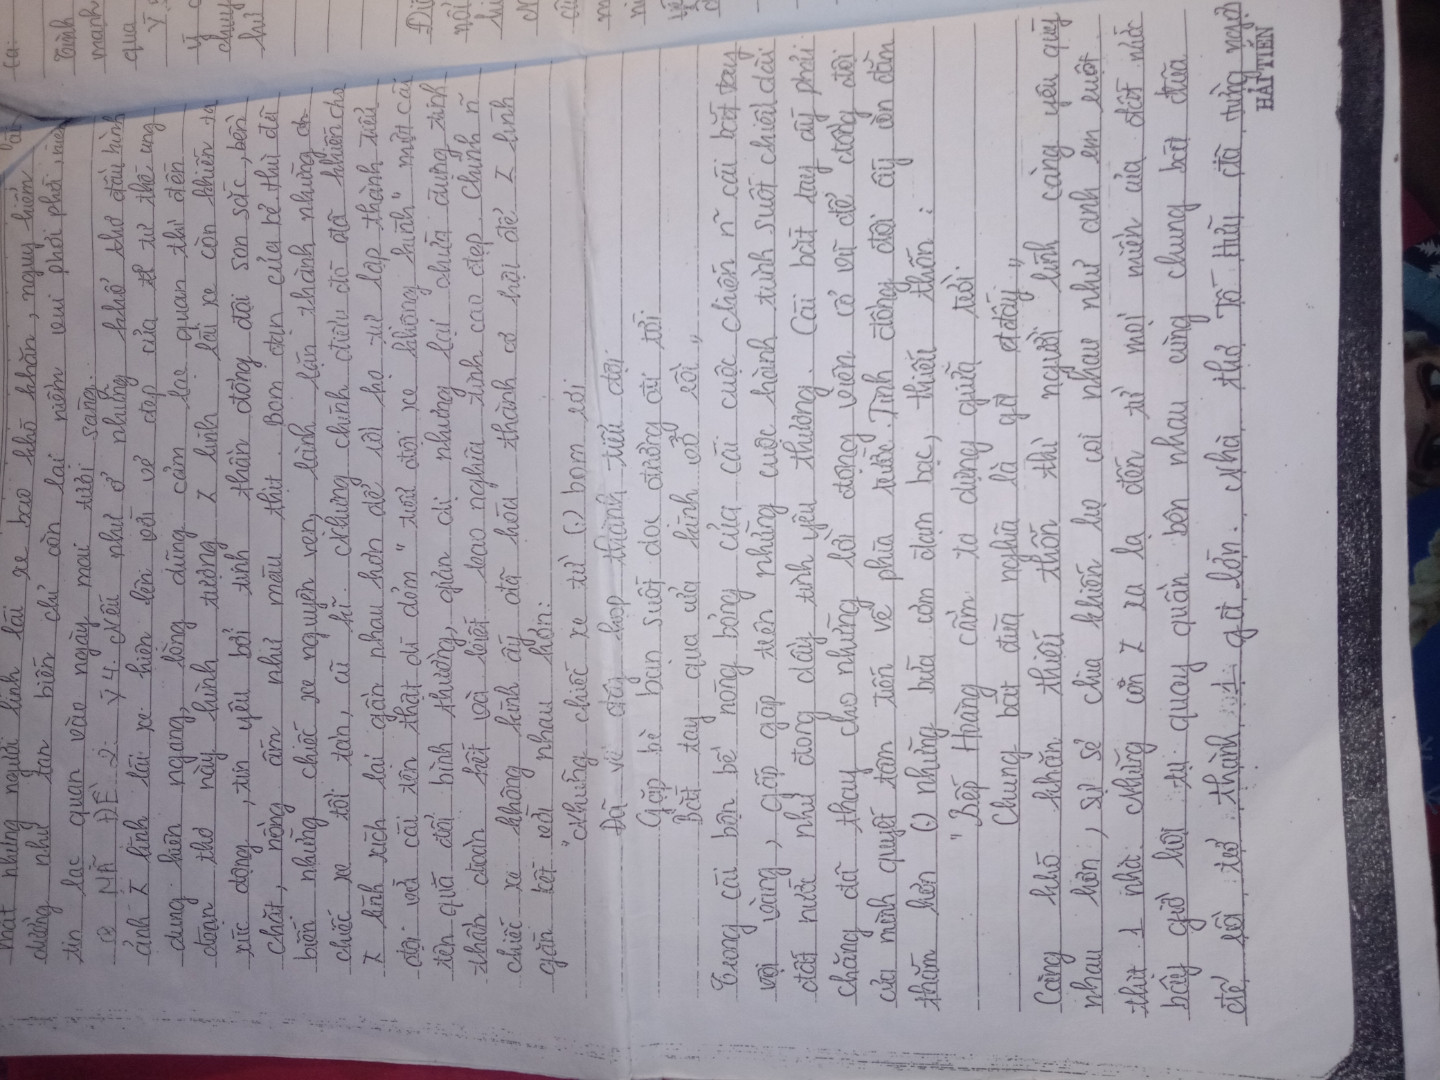 mắt những người lính lái xe bao khó khăn, nguy hiểm
dường như tan biến chỉ còn lại niềm vui phơi phới, niềm
tin lạc quan vào ngày mai tươi sáng.
MỞ ĐỀ 2: Ý 4. Nếu như ở những khổ thơ đầu hình
ảnh lính lái xe hiện lên với vẻ đẹp của tư thế ung
dung hiên ngang, lòng dũng cảm lạc quan thì đến
đoạn thơ này hình tượng lính lái xe còn khiến ta
xúc động, tin yêu bởi tình thần đồng đội son sắc, bền
chặt, nồng ấm như máu thịt. Bom đạn của kẻ thù đã
biến những chiếc xe nguyên vẹn, lành lặn thành những
chiếc xe tồi tàn, cũ kĩ. Chúng chính điều đó đã khiến cho
lính xích lại gần nhau hơn để rồi họ tự lập thành tiểu
đội với cái tên thật dí dỏm "tiểu đội xe không kính" một cái
tên quá đỗi bình thường, giản dị nhưng lại chứa đựng tinh
thần đoàn kết và biết bao nghĩa tình cao đẹp. Chính
chiếc xe không kính ấy đã hóa thành cơ hội để lính
gắn kết với nhau hơn:
"Những chiếc xe từ (.) bom rơi
Đã về đây họp thành tiểu đội
Gặp bè bạn suốt dọc đường đi tới
Bắt tay qua cửa kính vỡ rồi"
Trong cái bộn bề nóng bỏng của cái cuộc chiến cái bắt tay
vội vàng, gặp gặp trên những cuộc hành trình suốt chiều dài
đất nước như đong đầy tình yêu thương. Cái bắt tay ấy phải
chăng đã thay cho những lời động viên cổ vũ để đồng đội
của mình quyết tâm tiến về phía trước. Tình đồng đội ấy còn đằm
thắm hơn (.) những bữa cơm đạm bạc, thiếu thốn:
"Bếp Hoàng cầm ta dựng giữa trời
Chung bát đũa nghĩa là gia đình đấy"
Càng khó khăn thiếu thốn thì người lính càng yêu quý
nhau hơn, sự sẻ chia khiến họ coi nhau như anh em ruột
thịt 1 nhà. Những xa lạ đến từ mọi miền của đất nước
bây giờ hội tụ quây quần bên nhau cùng chung bát đũa
để rồi trở thành gđ lớn. Nhà thơ Tố Hữu đã từng
HẢI TIẾN